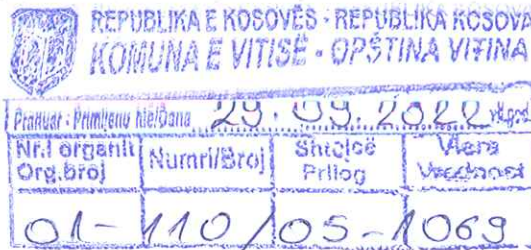 REPUBLIKA E KOSOVËS - REPUBLIKA KOSOVA
KOMUNA E VITISË - OPŠTINA VITINA
Pranuar - Primljeno më/Dana 29.09.2022
Nr.i organit Numri/Broj Shtojcë Vlera
Org.broj Prilog Vrednost
01- 110/05-1069